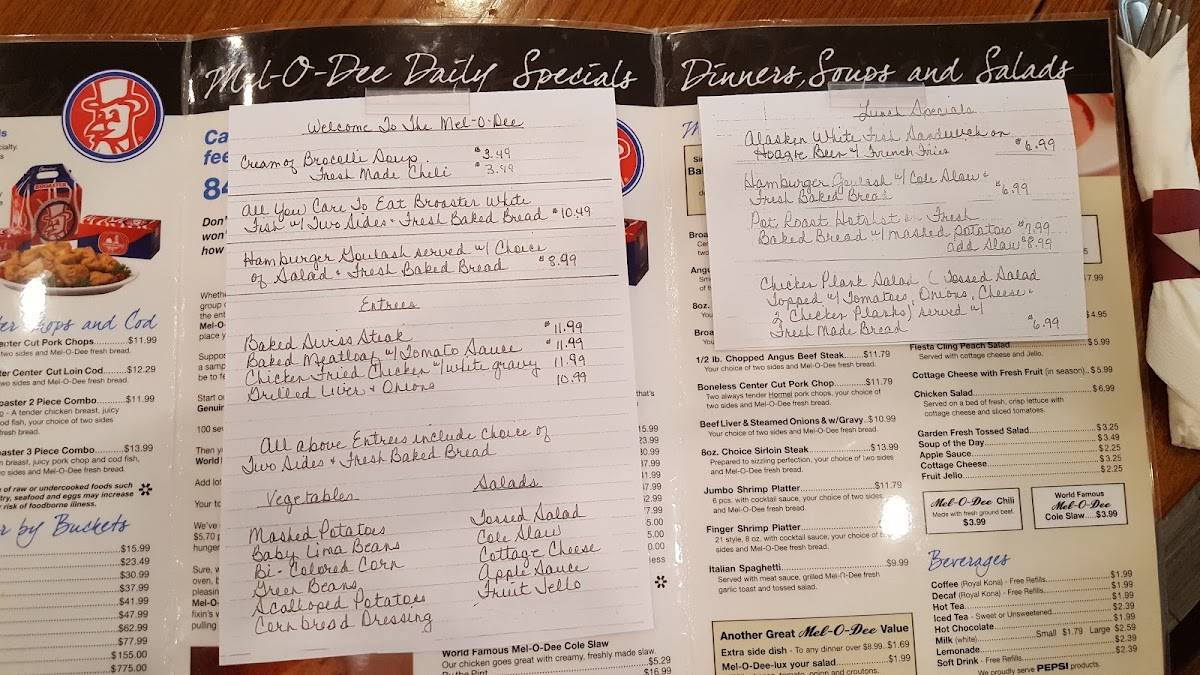 Mel-O-Dee Daily Specials
Dinners, Soups and Salads
Welcome To The Mel-O-Dee
Cream of Brocolli Soup $3.49
Fresh Made Chili $3.99
All You Care To Eat Broaster White
Fish w/ Two Sides + Fresh Baked Bread $10.49
Hamburger Goulash served w/ Choice
of Salad + Fresh Baked Bread $8.99
Entrees
Baked Swiss Steak $11.99
Baked Meatloaf w/ Tomato Sauce $11.99
Chicken Fried Chicken w/ white gravy 11.99
Grilled Liver + Onions 10.99
All above Entrees include choice of
Two Sides + Fresh Baked Bread
Vegetables
Mashed Potatoes
Baby Lima Beans
Bi-Colored Corn
Green Beans
Scalloped Potatoes
Cornbread Dressing
Salads
Tossed Salad
Cole Slaw
Cottage Cheese
Apple Sauce
Fruit Jello
Lunch Specials
Alasken White Fish Sandwich on
Hoagie Bun w/ French Fries $6.99
Hamburger Goulash w/ Cole Slaw +
Fresh Baked Bread $6.99
Pot Roast Hotshot on Fresh
Baked Bread w/ mashed Potatoes $7.99
add Slaw $8.99
Chicken Plank Salad (Tossed Salad
Topped w/ Tomatoes, Onions, Cheese +
2 Chicken Planks) served w/
Fresh Made Bread $6.99
Chops and Cod
Center Cut Pork Chops $11.99
two sides and Mel-O-Dee fresh bread.
Center Cut Loin Cod $12.29
two sides and Mel-O-Dee fresh bread.
2 Piece Combo $11.99
- A tender chicken breast, juicy
fish, your choice of two sides
fresh bread.
3 Piece Combo $13.99
breast, juicy pork chop and cod fish,
sides and Mel-O-Dee fresh bread.
of raw or undercooked foods such
seafood and eggs may increase
risk of foodborne illness.
by Buckets
$15.99
$23.49
$30.99
$37.99
$41.99
$47.99
$62.99
$77.99
$155.00
$775.00
World Famous Mel-O-Dee Cole Slaw
Our chicken goes great with creamy, freshly made slaw.
By the Pint $5.29
$16.99
1/2 lb. Chopped Angus Beef Steak $11.79
Your choice of two sides and Mel-O-Dee fresh bread.
Boneless Center Cut Pork Chop $11.79
Two always tender Hormel pork chops, your choice of
two sides and Mel-O-Dee fresh bread.
Beef Liver & Steamed Onions & w/Gravy $10.99
Your choice of two sides and Mel-O-Dee fresh bread.
8oz. Choice Sirloin Steak $13.99
Prepared to sizzling perfection, your choice of two sides
and Mel-O-Dee fresh bread.
Jumbo Shrimp Platter $11.79
6 pcs. with cocktail sauce, your choice of two sides
and Mel-O-Dee fresh bread.
Finger Shrimp Platter
21 style, 8 oz. with cocktail sauce, your choice of two
sides and Mel-O-Dee fresh bread.
Italian Spaghetti $9.99
Served with meat sauce, grilled Mel-O-Dee fresh
garlic toast and tossed salad.
Another Great Mel-O-Dee Value
Extra side dish - To any dinner over $8.99 $1.69
Mel-O-Dee-lux your salad $1.99
Fiesta Cling Peach Salad $5.99
Served with cottage cheese and Jello.
Cottage Cheese with Fresh Fruit (in season) $5.99
Chicken Salad $6.99
Served on a bed of fresh, crisp lettuce with
cottage cheese and sliced tomatoes.
Garden Fresh Tossed Salad $3.25
Soup of the Day $3.49
Apple Sauce $2.25
Cottage Cheese $3.25
Fruit Jello $2.25
Mel-O-Dee Chili
Made with fresh ground beef.
$3.99
World Famous
Mel-O-Dee
Cole Slaw $3.99
Beverages
Coffee (Royal Kona) - Free Refills $1.99
Decaf (Royal Kona) - Free Refills $1.99
Hot Tea $1.99
Iced Tea - Sweet or Unsweetened $2.39
Hot Chocolate $1.99
Milk (white) Small $1.79 Large $2.59
Lemonade $2.39
Soft Drink - Free Refills $2.39
We proudly serve PEPSI products.